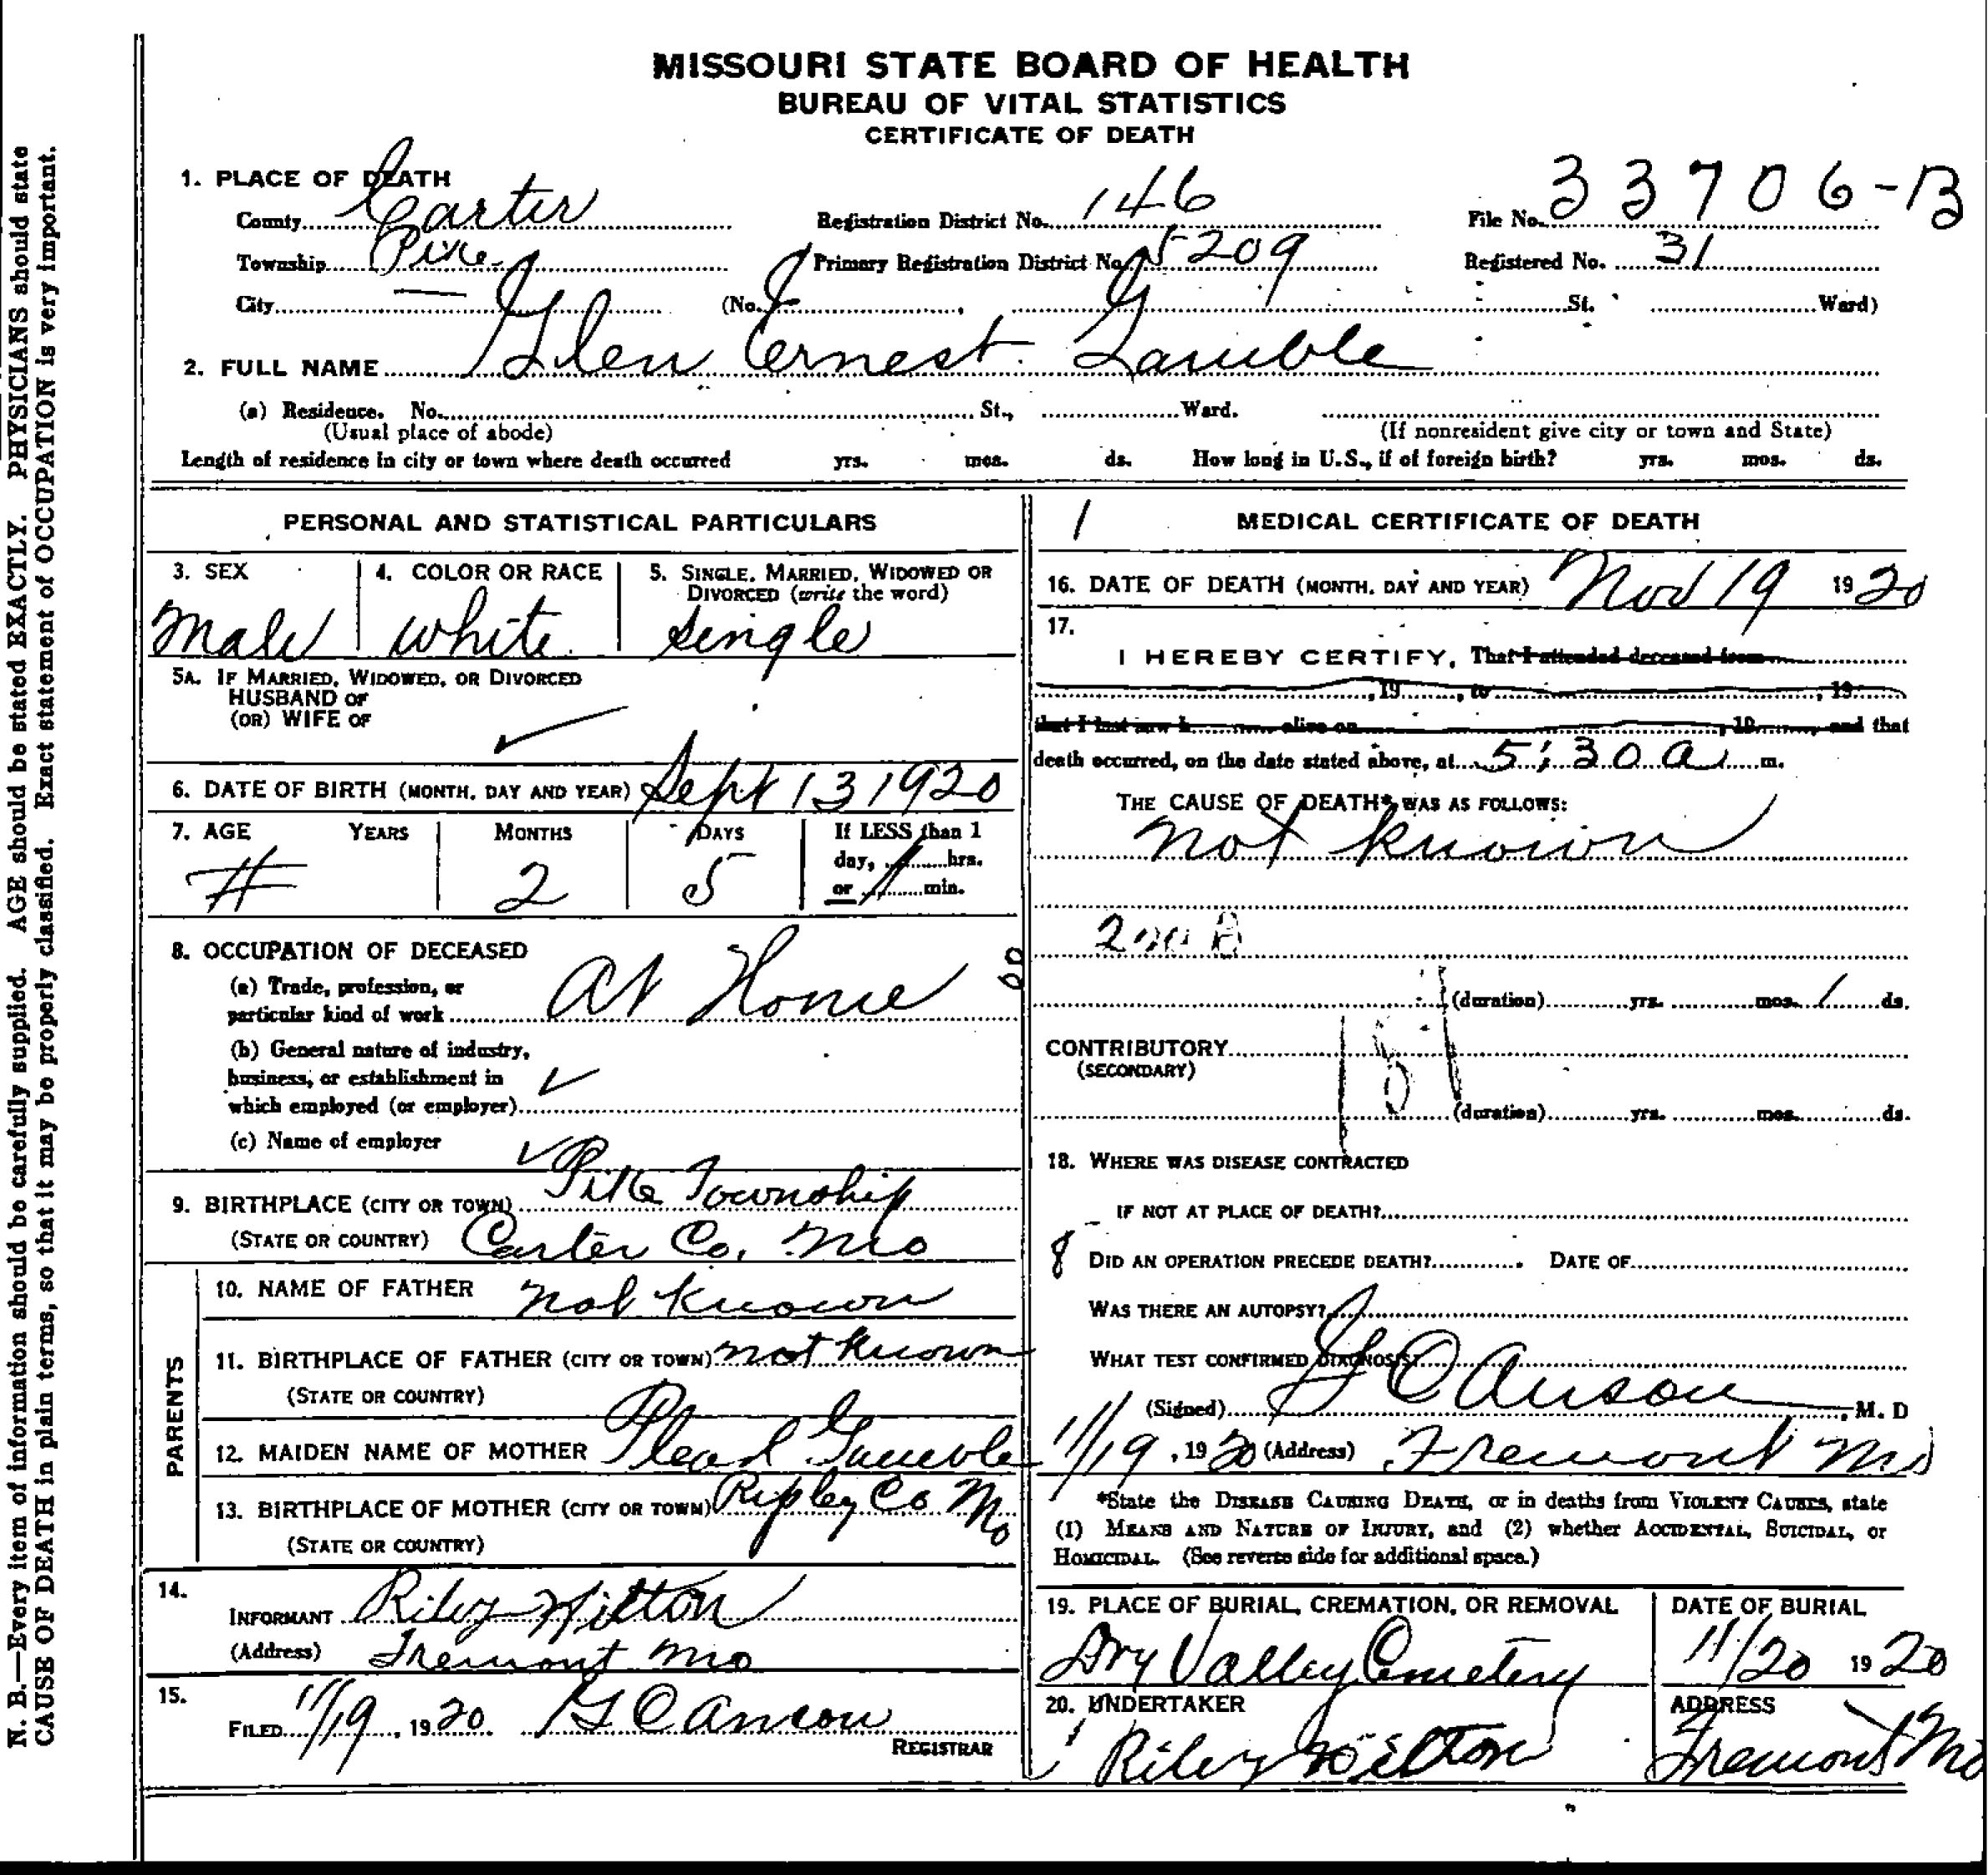 MISSOURI STATE BOARD OF HEALTH
BUREAU OF VITAL STATISTICS
CERTIFICATE OF DEATH
1. PLACE OF DEATH
County Carter Registration District No. 146 File No. 33706-B
Township Pike Primary Registration District No. 5209 Registered No. 31
City — (No. , St. Ward)
2. FULL NAME Glen Ernest Gamble
(a) Residence. No. St., Ward.
(Usual place of abode) (If nonresident give city or town and State)
Length of residence in city or town where death occurred yrs. mos. ds. How long in U.S., if of foreign birth? yrs. mos. ds.
PERSONAL AND STATISTICAL PARTICULARS
3. SEX 4. COLOR OR RACE 5. SINGLE, MARRIED, WIDOWED OR
DIVORCED (write the word)
Male white single
5A. IF MARRIED, WIDOWED, OR DIVORCED
HUSBAND OF
(OR) WIFE OF
6. DATE OF BIRTH (MONTH, DAY AND YEAR) Sept 13 1920
7. AGE YEARS MONTHS DAYS If LESS than 1
day, hrs.
or min.
# 2 5
8. OCCUPATION OF DECEASED
(a) Trade, profession, or
particular kind of work At Home
(b) General nature of industry,
business, or establishment in
which employed (or employer)
(c) Name of employer
9. BIRTHPLACE (CITY OR TOWN) Pike Township
(STATE OR COUNTRY) Carter Co. Mo
PARENTS
10. NAME OF FATHER not known
11. BIRTHPLACE OF FATHER (CITY OR TOWN) not known
(STATE OR COUNTRY)
12. MAIDEN NAME OF MOTHER Gamble
13. BIRTHPLACE OF MOTHER (CITY OR TOWN) Ripley Co Mo
(STATE OR COUNTRY)
14.
INFORMANT Riley Wilton
(Address) Fremont Mo
15.
FILED 11/19, 1920 G C Anson
REGISTRAR
1 MEDICAL CERTIFICATE OF DEATH
16. DATE OF DEATH (MONTH, DAY AND YEAR) Nov 19 1920
17.
I HEREBY CERTIFY, That I attended deceased from
, 19 , to , 19
that I last saw h alive on , 19 , and that
death occurred, on the date stated above, at 5:30 a m.
THE CAUSE OF DEATH* WAS AS FOLLOWS:
not known
(duration) yrs. mos. 1 ds.
CONTRIBUTORY
(SECONDARY)
(duration) yrs. mos. ds.
18. WHERE WAS DISEASE CONTRACTED
IF NOT AT PLACE OF DEATH?
8 DID AN OPERATION PRECEDE DEATH? DATE OF
WAS THERE AN AUTOPSY?
WHAT TEST CONFIRMED DIAGNOSIS?
(Signed) G C Anson, M. D
11/19, 1920 (Address) Fremont Mo
*State the DISEASE CAUSING DEATH, or in deaths from VIOLENT CAUSES, state
(1) MEANS AND NATURE OF INJURY, and (2) whether ACCIDENTAL, SUICIDAL, or
HOMICIDAL. (See reverse side for additional space.)
19. PLACE OF BURIAL, CREMATION, OR REMOVAL DATE OF BURIAL
Dry Valley Cemetery 11/20 1920
20. UNDERTAKER ADDRESS
Riley Wilton Fremont Mo
N. B.—Every item of information should be carefully supplied. AGE should be stated EXACTLY. PHYSICIANS should state
CAUSE OF DEATH in plain terms, so that it may be properly classified. Exact statement of OCCUPATION is very important.